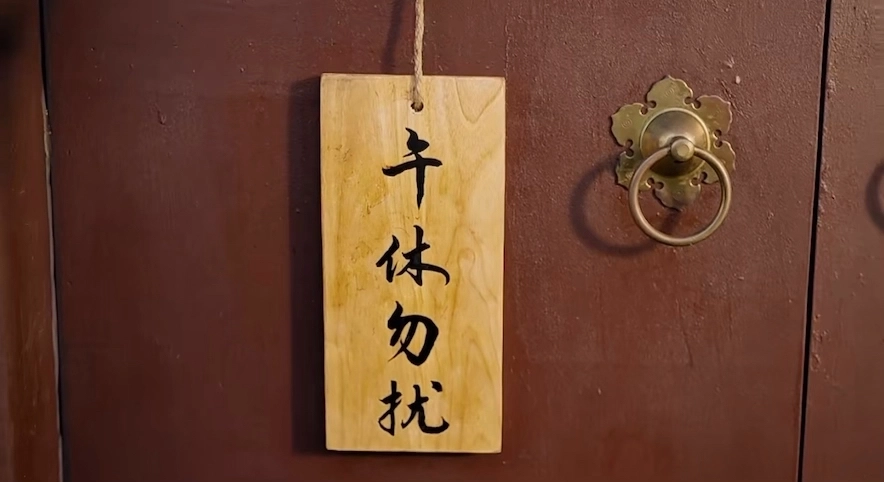 午休勿扰